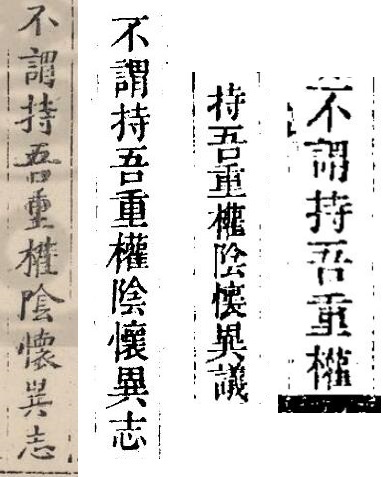 不謂持吾重權陰懷異志
不謂持吾重權陰懷異志
持吾重權陰懷異議
不謂持吾重權